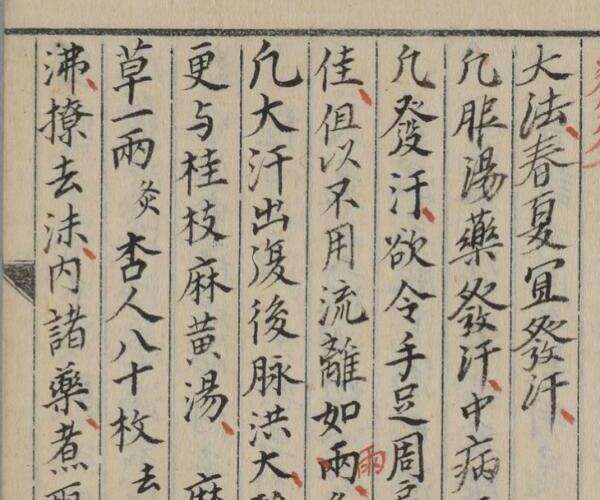 大法春夏宜發汗
凡服湯藥發汗中病
凡發汗欲令手足周
佳但以不用流離如兩雨
凡大汗出復後脉洪大
更与桂枝麻黄湯麻
草一兩炙杏人八十枚去
沸撩去沫内諸藥煮